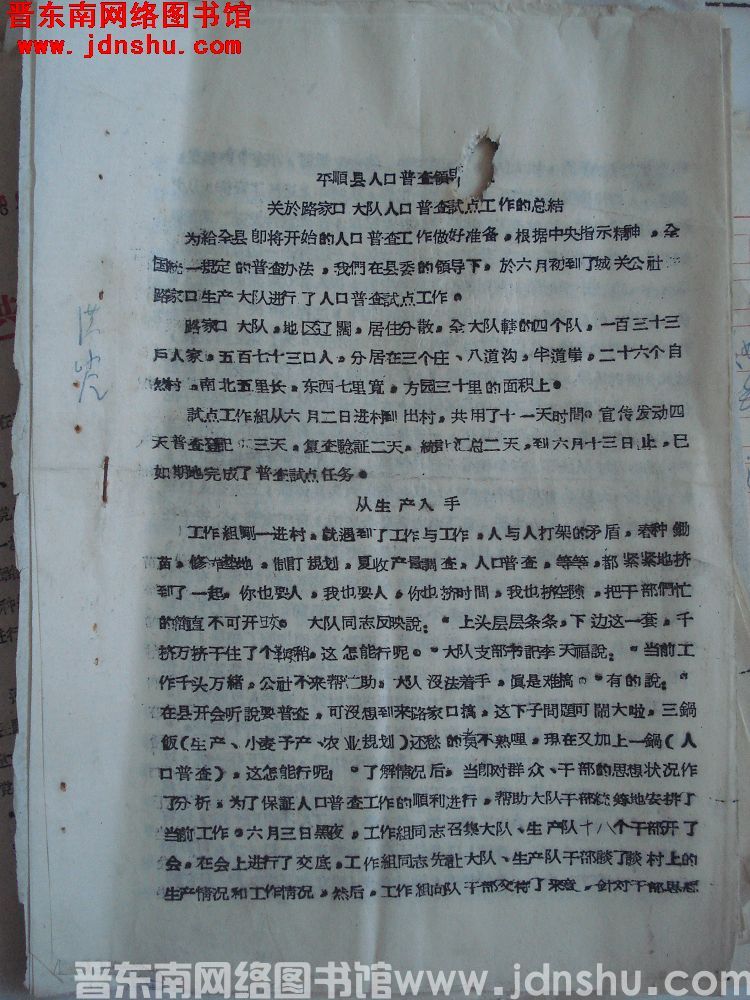 晋东南网络图书馆
www.jdnshu.com
平順县人口普查領
关於路家口大队人口普查試点工作的总結
为給全县即将开始的人口普查工作做好准备，根据中央指示精神，全
国統一规定的普查办法，我們在县委的領导下，於六月初到了城关公社
路家口生产大队进行了人口普查試点工作。
路家口大队，地区辽闊，居住分散，全大队轄的四个队，一百三十三
戶人家，五百七十三口人，分居在三个庄、八道沟，半道崖，二十六个自
然村，南北五里长，东西七里寬，方园三十里的面积上。
試点工作組从六月二日进村到出村，共用了十一天时間。宣传发动四
天普查登記三天，复查驗証二天，統計汇总二天，到六月十三日止，已
如期地完成了普查試点任务。
从生产入手
工作組剛一进村，就遇到了工作与工作，人与人打架的矛盾，春种鋤
苗，修垫地，制訂規划，夏收产量調查，人口普查，等等，都紧紧地挤
到了一起，你也要人，我也要人，你也挤时間，我也挤空隙，把干部們忙
的簡直不可开交。大队同志反映說："上头层层条条，下边这一套，千
挤万挤干住了个鞭稍，这怎能行呢。"大队支部书記李天福說："当前工
作千头万緒，公社不来帮助，大队沒法着手，眞是难搞。"有的說："
在县开会听說要普查，可沒想到来路家口搞，这下子問題可鬧大啦，三鍋
飯（生产、小麦予产、农业规划）还愁的員不熟哩，現在又加上一鍋（人
口普查），这怎能行呢"了解情况后，当即对群众、干部的思想状况作
了分析，为了保証人口普查工作的順利进行，帮助大队干部統筹地安排了
当前工作。六月三日黑夜，工作組同志召集大队、生产队十八个干部开了
会，在会上进行了交底，工作組同志先让大队、生产队干部談了談村上的
生产情况和工作情况，然后，工作組向队干部交待了来意，針对干部思想
晋东南网络图书馆www.jdnshu.com